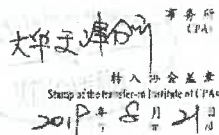 事务所
(CPAs)
大华天津分所
转入协会盖章
Stamp of the transfer-in Institute of CPAs
2019年8月21日